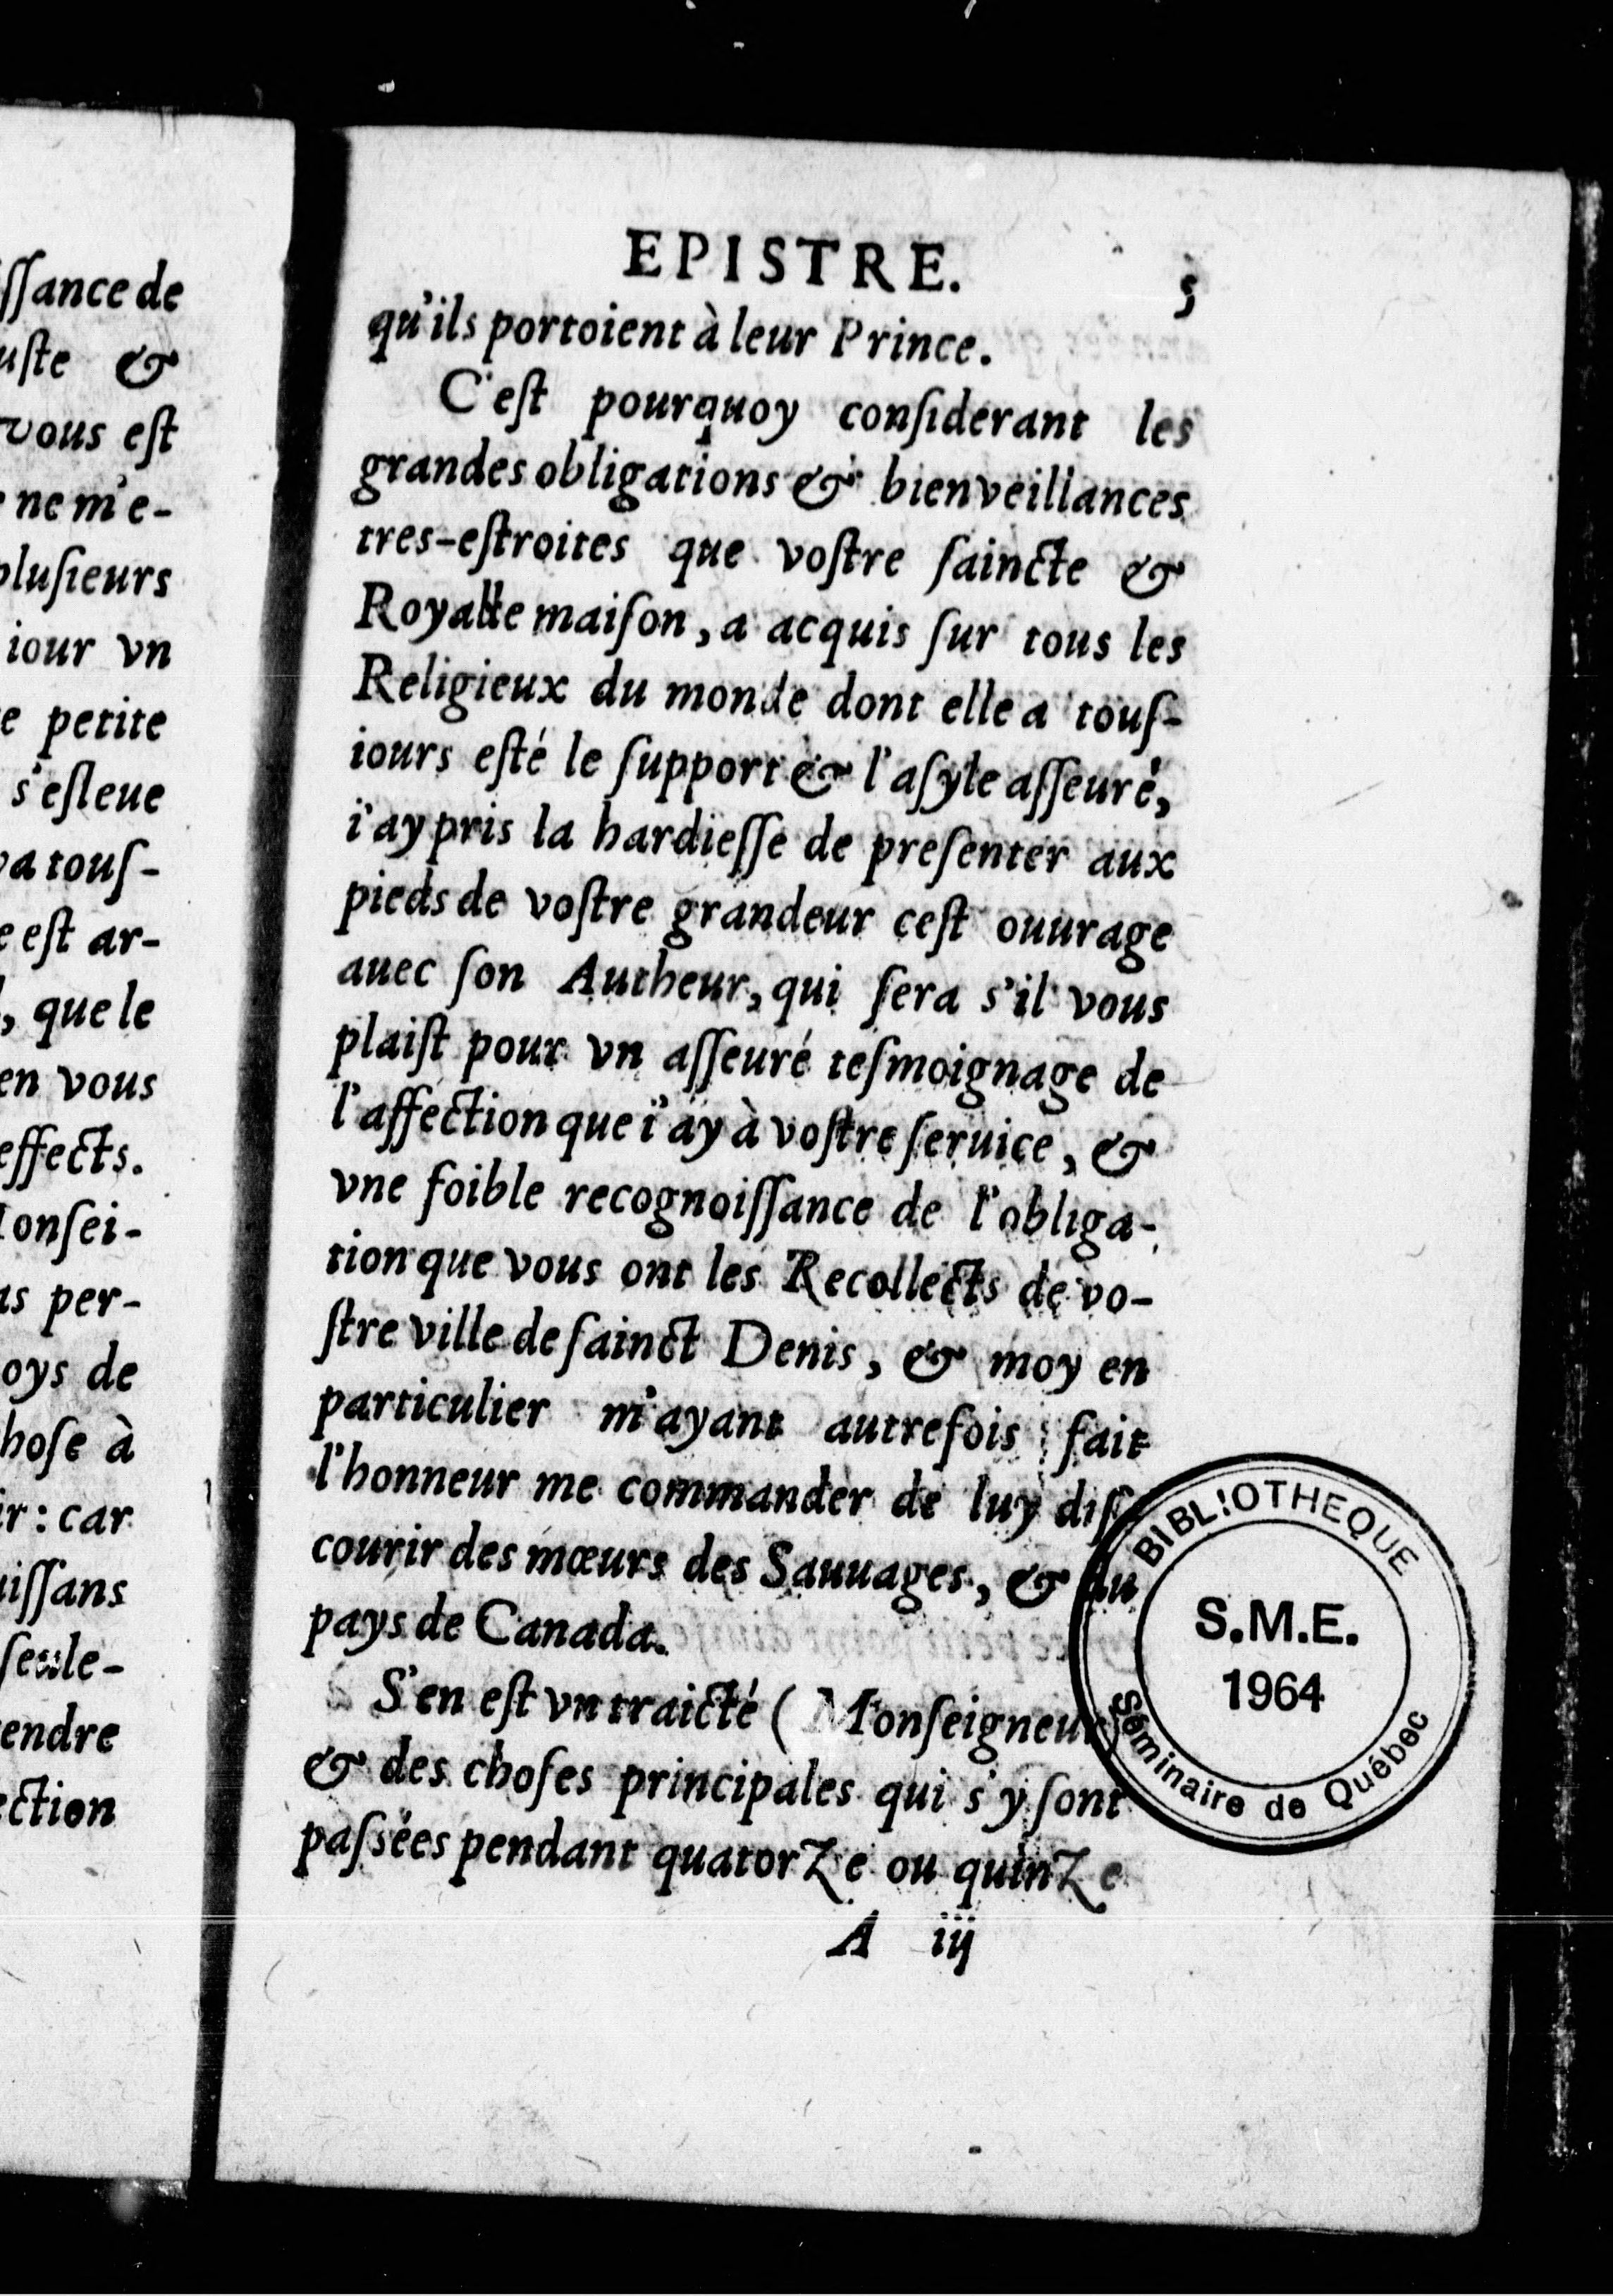 ſſance de
uſte &
vous eſt
ne m'e-
pluſieurs
iour vn
e petite
s'eſleue
va touſ-
e eſt ar-
, que le
en vous
effects.
onſei-
as per-
oys de
hoſe à
ir : car
uiſſans
ſeule-
endre
ection
EPISTRE. 5
qu'ils portoient à leur Prince.
C'eſt pourquoy conſiderant les
grandes obligations & bienveillances
tres-eſtroites que voſtre ſaincte &
Royalle maiſon, a acquis ſur tous les
Religieux du monde dont elle a touſ-
iours eſté le ſupport & l'aſyle aſſeuré,
i'ay pris la hardieſſe de preſenter aux
pieds de voſtre grandeur ceſt ouurage
auec ſon Autheur, qui ſera s'il vous
plaiſt pour vn aſſeuré teſmoignage de
l'affection que i'ay à voſtre ſeruice, &
vne foible recognoiſſance de l'obliga-
tion que vous ont les Recollects de vo-
ſtre ville de ſainct Denis, & moy en
particulier m'ayant autrefois fait
l'honneur me commander de luy diſ-
courir des mœurs des Sauuages, & du
pays de Canada.
S'en eſt vn traicté ( Monſeigneur)
& des choſes principales qui s'y ſont
paſsées pendant quatorze ou quinze
A iij
BIBLIOTHEQUE
S.M.E.
1964
Séminaire de Québec